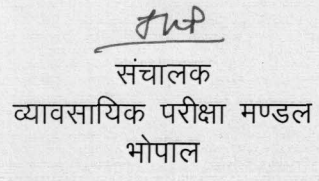 संचालक
व्यावसायिक परीक्षा मण्डल
भोपाल